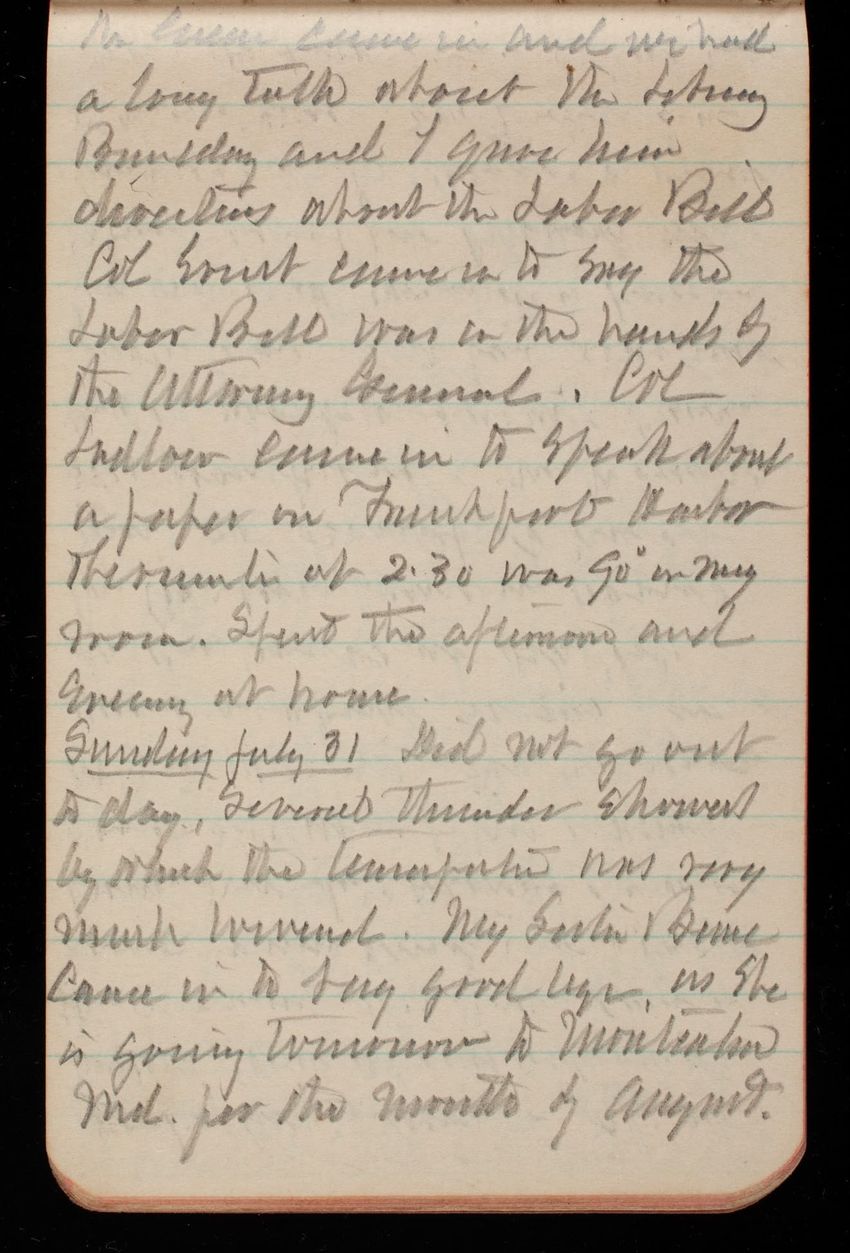 Mr Green came in and we had
a long talk about the Library
Building and I gave him
directions about the Labor Bill
Col Ernst came in to say the
Labor Bill was in the hands of
the Attorney General. Col
Ludlow came in to speak about
a paper on Frankfort Harbor
Thermometer at 2.30 was 90° in my
room. Spent the afternoon and
evening at home.
Sunday July 31 Did not go out
to day, Several thunder showers
by which the temperature was very
much lowered. My Sister
came in to say good bye, as she
is going tomorrow to
Md. for the month of August.